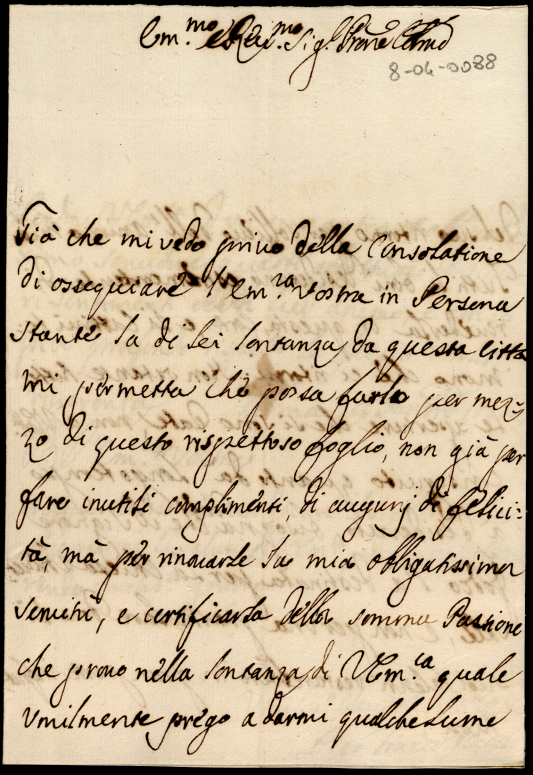 Em.mo e Rev.mo Sig.r Prone
8-04-0088
Già che mi vedo privo della Consolatione
di ossequiare l'Em.za Vostra in Persona
stante la di lei lontanza da questa Città
mi permetta che possa farlo per mez=
zo di questo rispettoso foglio, non già per
fare inutili complimenti, di augurj di felici=
tà, mà per rinovarle la mia obbligatissima
servitù, e certificarla della somma Passione
che provo nella lontanza di V Em.za quale
Vmilmente prego a darmi qualche lume